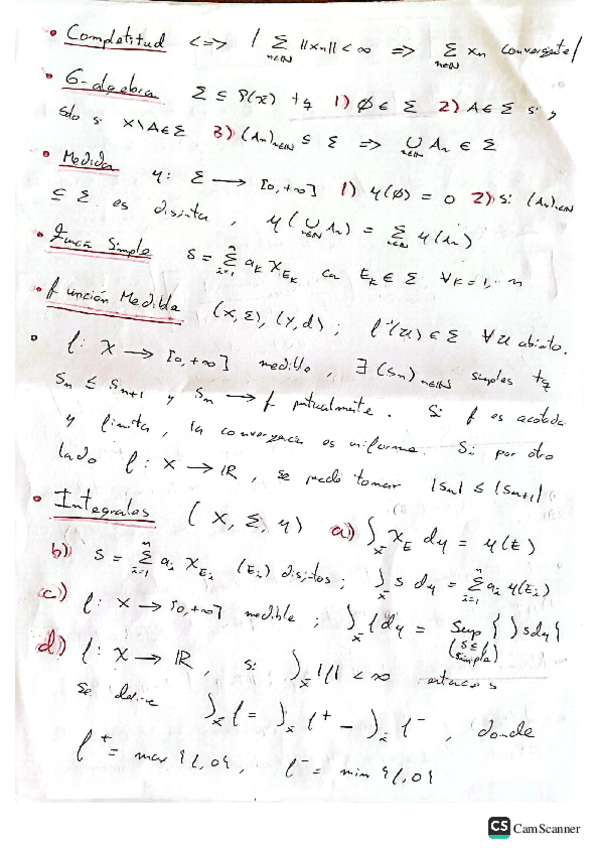 • Completitud <=> / Σ_{n∈ℕ} ||xn|| < ∞ => Σ_{n∈ℕ} xn convergente /
• σ-álgebra Σ ⊆ P(X) tq 1) ∅ ∈ Σ 2) A ∈ Σ si y
sólo si X\A ∈ Σ 3) (An)_{n∈ℕ} ⊆ Σ => ∪_{n∈ℕ} An ∈ Σ
• Medida μ: Σ → [0,+∞] 1) μ(∅) = 0 2) Si (An)_{n∈ℕ}
⊆ Σ es disjunta, μ(∪_{n∈ℕ} An) = Σ_{n∈ℕ} μ(An)
• Función Simple s = Σ_{i=1}^{n} a_k χ_{E_k} con E_k ∈ Σ ∀k=1,..n
• función Medible (X,Σ), (Y,d); f⁻¹(U) ∈ Σ ∀U abierto.
• f: X → [0,+∞] medible, ∃ (Sn)_{n∈ℕ} simples tq
Sn ≤ Sn+1 y Sn → f puntualmente. Si f es acotada
y limita, la convergencia es uniforme. Si por otro
lado f: X → ℝ, se puede tomar |Sn| ≤ |Sn+1|
• Integrales (X,Σ,μ) a) ∫_X χ_E dμ = μ(E)
b) s = Σ_{i=1}^{n} a_i χ_{E_i} (E_i) disjuntos; ∫_X s dμ = Σ_{i=1}^{n} a_i μ(E_i)
c) f: X → [0,+∞] medible; ∫_X f dμ = Sup { ∫ s dμ }
(s ≤ f simple)
d) f: X → ℝ, si ∫_X |f| < ∞ entonces
se define ∫_X f = ∫_X f⁺ − ∫_X f⁻, donde
f⁺ = max {f,0}, f⁻ = min {f,0}
CS CamScanner